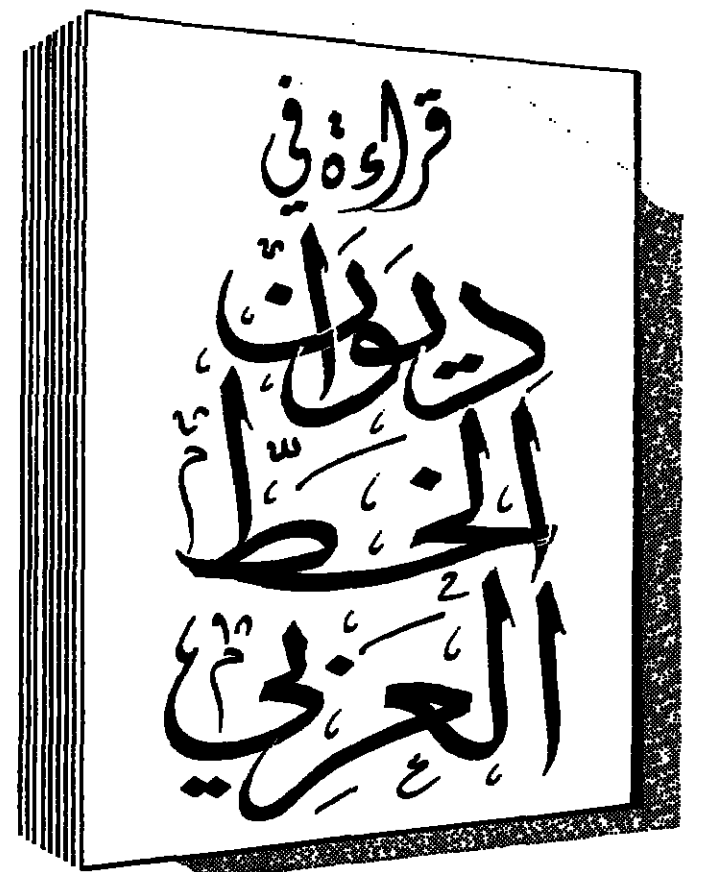 قراءة في
ديوان
الخط
العربي